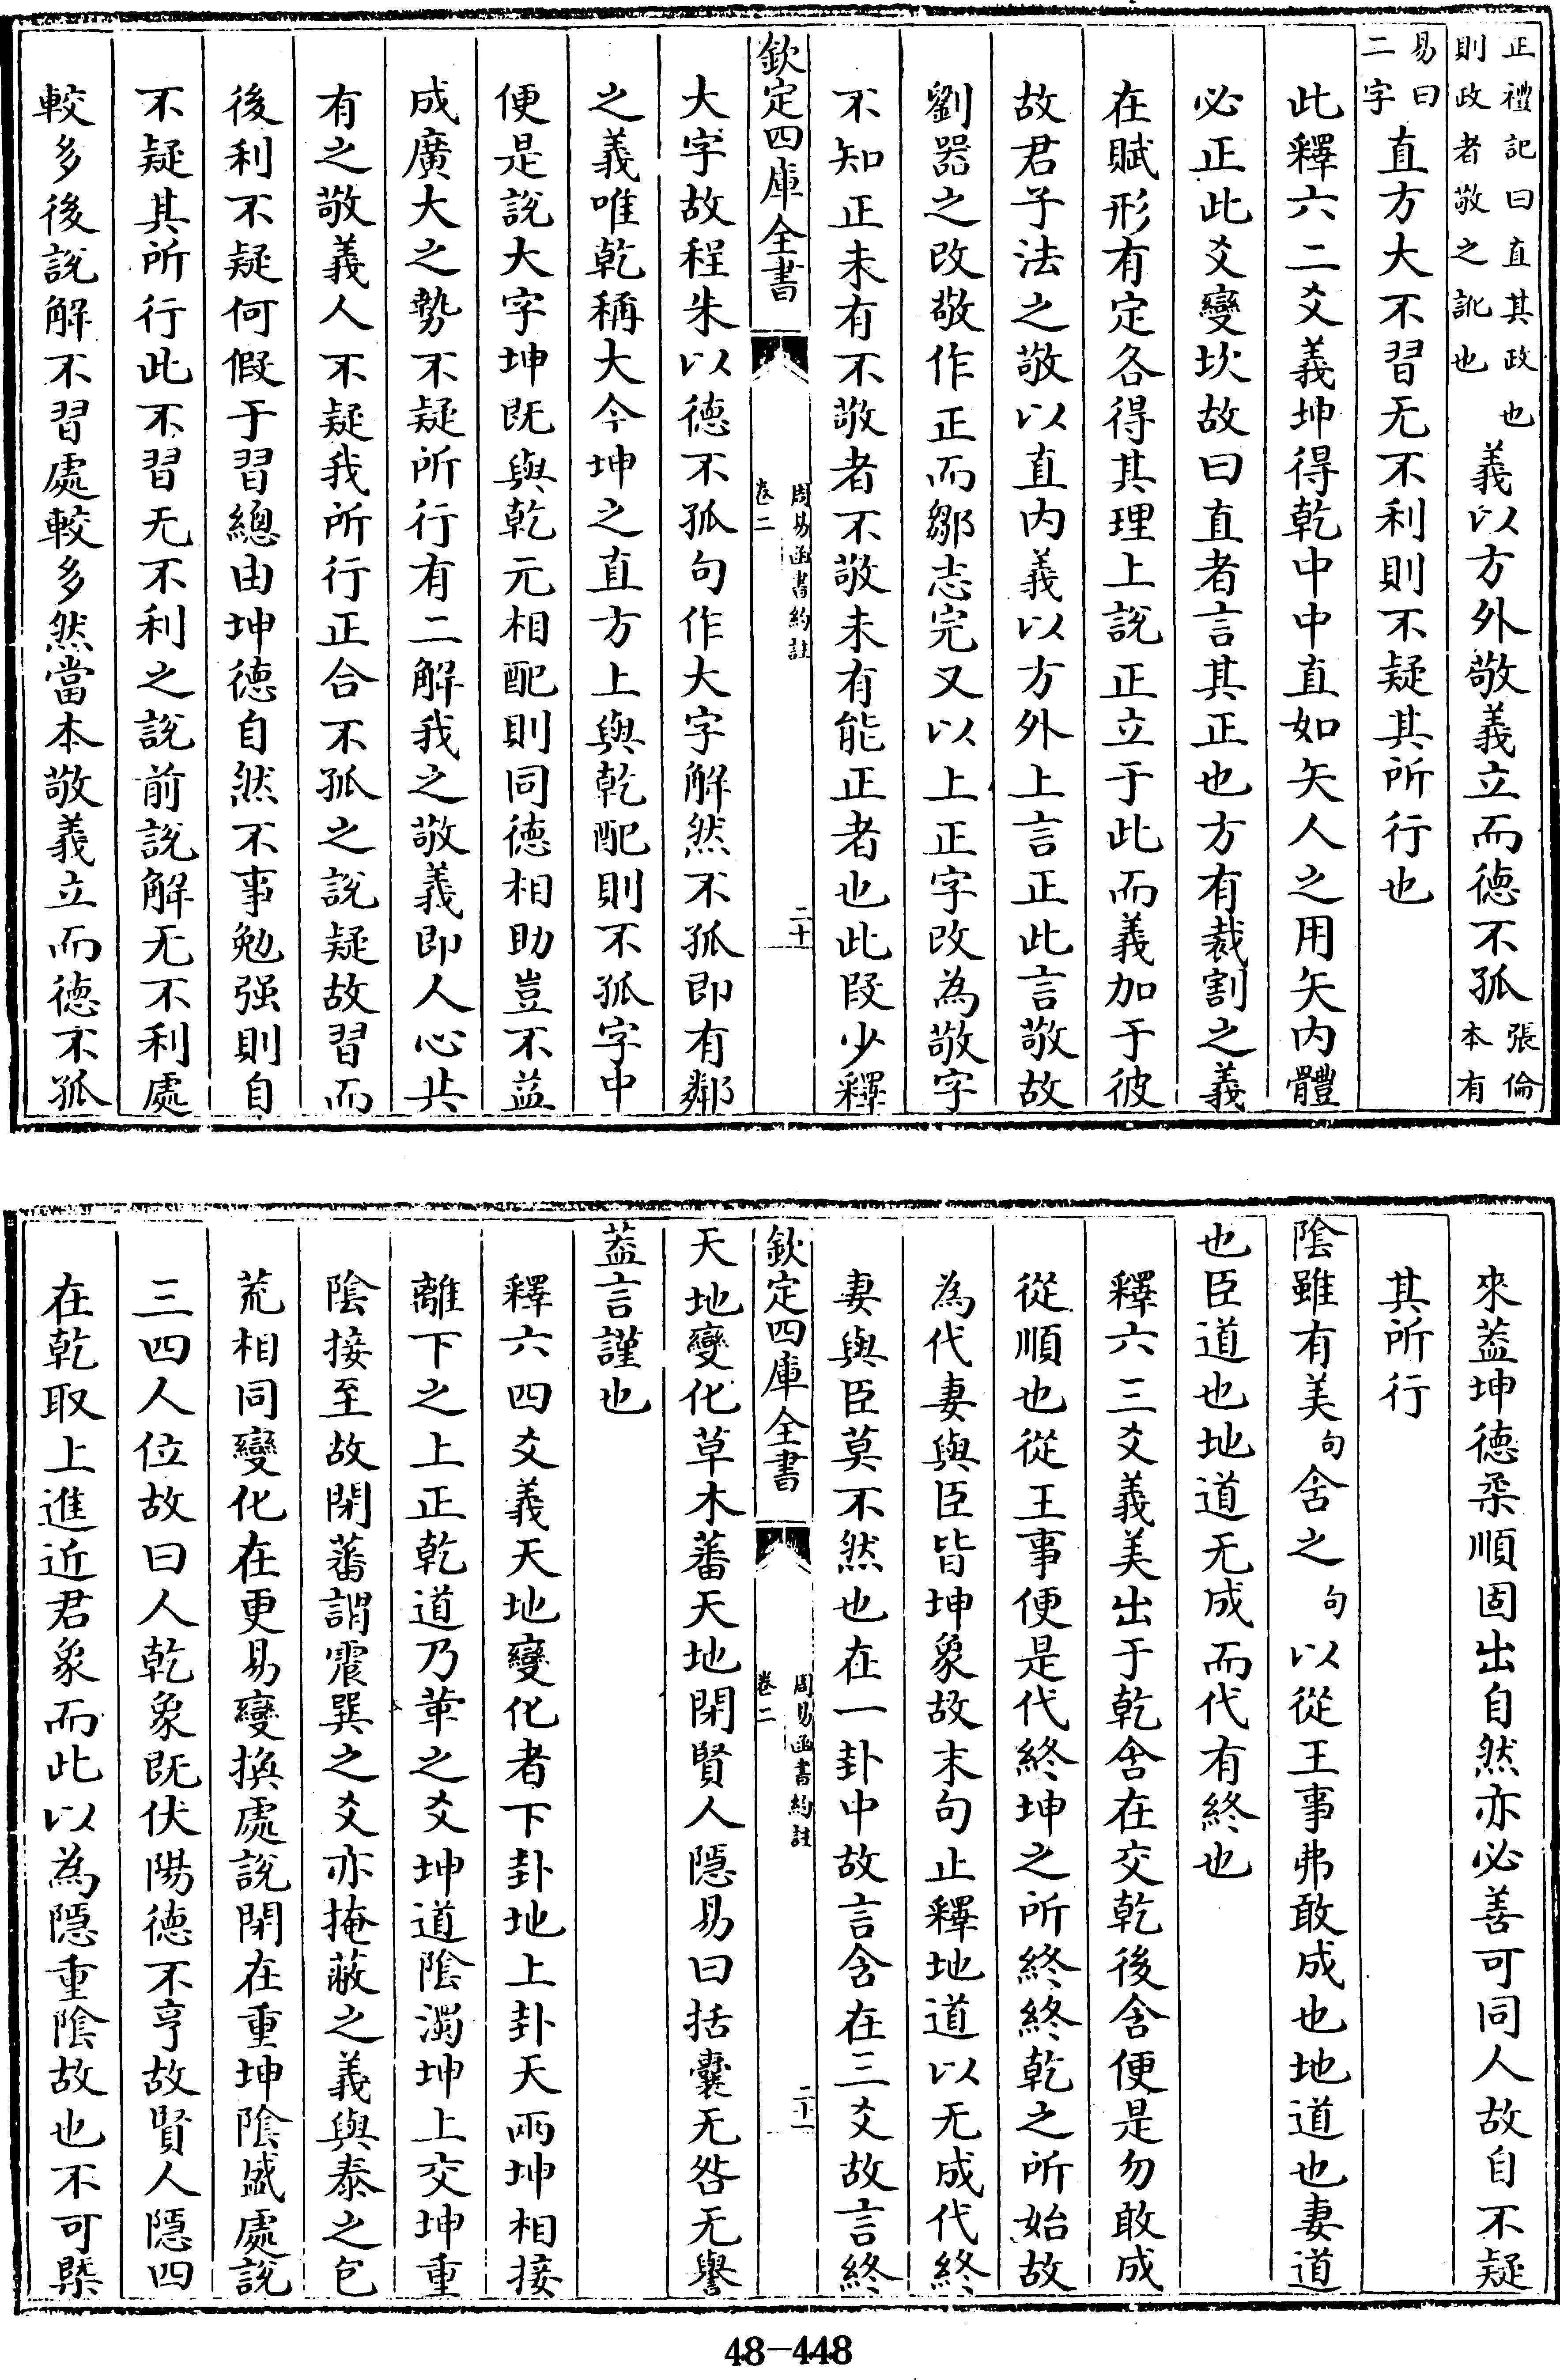 正禮記曰直其政也則政者敬之訛也義以方外敬義立而德不孤張倫本有
易曰二字直方大不習无不利則不疑其所行也
此釋六二爻義坤得乾中中直如矢人之用矢内體
必正此爻變坎故曰直者言其正也方有裁割之義
在賦形有定各得其理上說正立于此而義加于彼
故君子法之敬以直内義以方外上言正此言敬故
劉器之改敬作正而鄒志完又以上正字改為敬字
不知正未有不敬者不敬未有能正者也此段少釋
欽定四庫全書
周易函書約註
卷二
二十
大字故程朱以德不孤句作大字解然不孤即有鄰
之義唯乾稱大今坤之直方上與乾配則不孤字中
便是說大字坤既與乾元相配則同德相助豈不益
成廣大之勢不疑所行有二解我之敬義即人心共
有之敬義人不疑我所行正合不孤之說疑故習而
後利不疑何假于習總由坤德自然不事勉强則自
不疑其所行此不習无不利之說前說解无不利處
較多後說解不習處較多然當本敬義立而德不孤
來葢坤德柔順固出自然亦必善可同人故自不疑
其所行
陰雖有美句含之句以從王事弗敢成也地道也妻道
也臣道也地道无成而代有終也
釋六三爻義美出于乾含在交乾後含便是勿敢成
從順也從王事便是代終坤之所終終乾之所始故
為代妻與臣皆坤象故末句止釋地道以无成代終
妻與臣莫不然也在一卦中故言含在三爻故言終
欽定四庫全書
周易函書約註
卷二
二十一
天地變化草木蕃天地閉賢人隱易曰括囊无咎无譽
葢言謹也
釋六四爻義天地變化者下卦地上卦天兩坤相接
離下之上正乾道乃革之爻坤道陰濁坤上交坤重
陰接至故閉蕃謂震巽之爻亦掩蔽之義與泰之包
荒相同變化在更易變換處說閉在重坤陰盛處說
三四人位故曰人乾象既伏陽德不亨故賢人隱四
在乾取上進近君象而此以為隱重陰故也不可槩
48-448